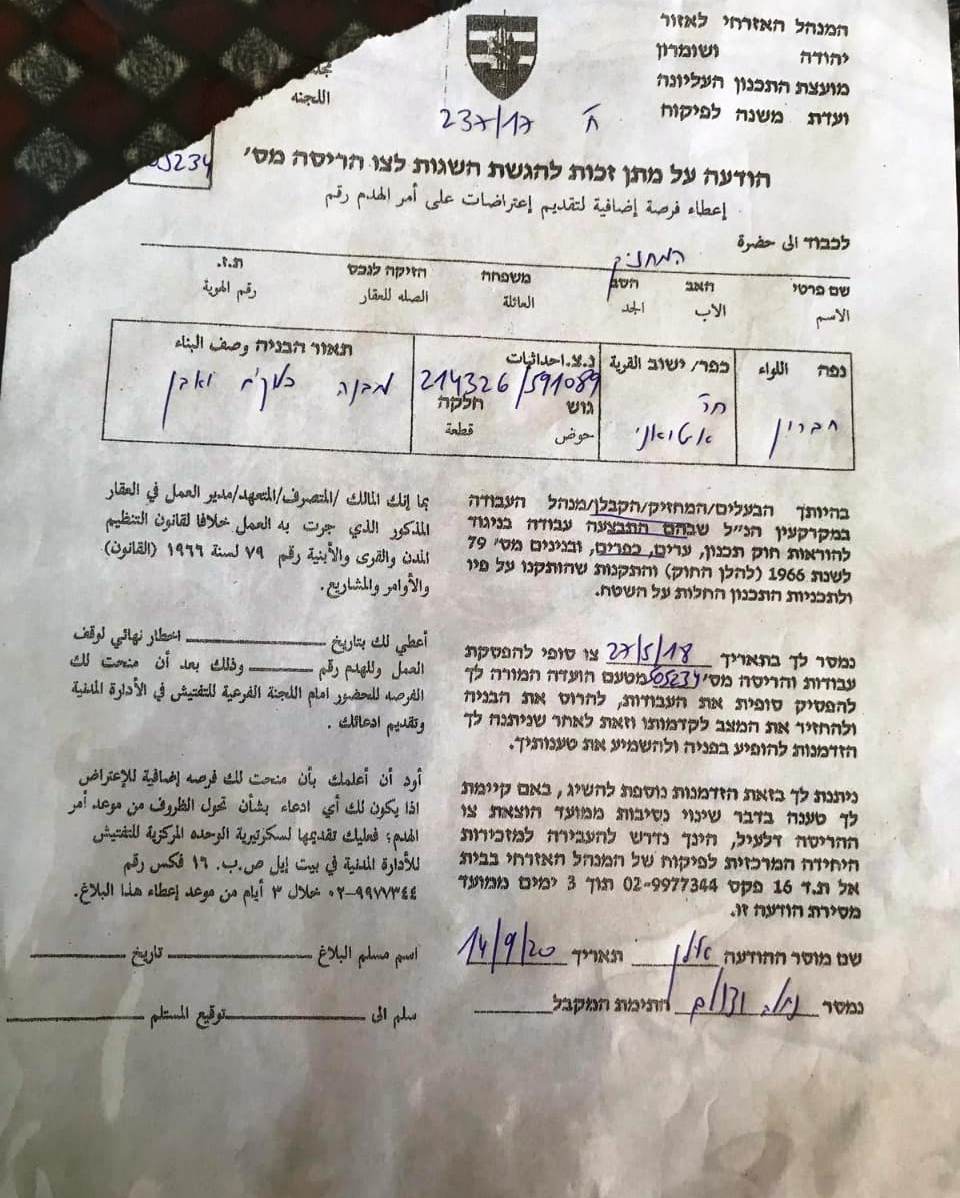 המנהל האזרחי לאזור
יהודה ושומרון
מועצת התכנון העליונה
ועדת משנה לפיקוח
اللجنه
ח' 237/17
הודעה על מתן זכות להגשת השגות לצו הריסה מס' 505234
إعطاء فرصة إضافية لتقديم إعتراضات على أمر الهدم رقم
לכבוד الى حضرة המחזיק
שם פרטי האב הסב משפחה הזיקה לנכס ת.ז.
الاسم الاب الجد العائلة الصله للعقار رقم الهوية
נפה اللواء כפר/ ישוב القرية נ.צ. احداثيات תאור הבניה وصف البناء
חברון ח' 214326/591089 מבנה ואבן
גוש חלקה
حوض قطعة
בהיותך הבעלים/המחזיק/הקבלן/מנהל העבודה
במקרקעין הנ"ל שבהם התבצעה עבודה בניגוד
להוראות חוק תכנון, ערים, כפרים, ובנינים מס' 79
לשנת 1966 (להלן החוק) והתקנות שהותקנו על פיו
ולתכניות התכנון החלות על השטח.
بما إنك المالك /المتصرف/المتعهد/مدير العمل في العقار
المذكور الذي جرت به العمل خلافا لقانون التنظيم
المدن والقرى والأبنية رقم ٧٩ لسنة ١٩٦٦ (القانون)
والأوامر والمشاريع.
נמסר לך בתאריך 27/5/18 צו סופי להפסקת
עבודות והריסה מס' 505234 מטעם הועדה המורה לך
להפסיק סופית את העבודות, להרוס את הבניה
ולהחזיר את המצב לקדמותו וזאת לאחר שניתנה לך
הזדמנות להופיע בפניה ולהשמיע את טענותיך.
أعطي لك بتاريخ ________ اخطار نهائي لوقف
العمل وللهدم رقم ________ وذلك بعد أن منحت لك
الفرصه للحضور امام اللجنة الفرعية للتفتيش في الأدارة المدنية
وتقديم ادعائك .
ניתנת לך בזאת הזדמנות נוספת להשיג , באם קיימת
לך טענה בדבר שינוי נסיבות ממועד הוצאת צו
ההריסה דלעיל, הינך נדרש להעבירה למזכירות
היחידה המרכזית לפיקוח של המנהל האזרחי בבית
אל ת.ד 16 פקס 02-9977344 תוך 3 ימים ממועד
מסירת הודעה זו.
أود أن أعلمك بأن منحت لك فرصه إضافية للإعتراض
اذا يكون لك أي ادعاء بشأن تحول الظروف من موعد أمر
الهدم؛ فعليك تقديمها لسكرتيرية الوحده المركزية للتفتيش
للأدارة المدنية في بيت إيل ص.ب. ١٦ فكس رقم
٠٢-٩٩٧٧٣٤٤ خلال ٣ أيام من موعد إعطاء هذا البلاغ.
שם מוסר ההודעה ________ תאריך 14/9/20
נמסר ________ חתימת המקבל ________
اسم مسلم البلاغ ________ تاريخ ________
سلم الى ________ توقيع المستلم ________